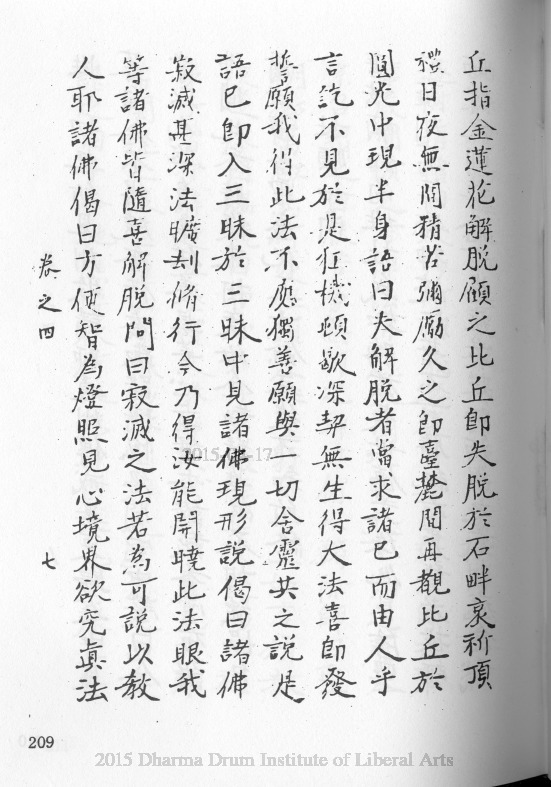 丘指金蓮花解脱顧之比丘即失脱於石畔哀祈頂
禮日夜無間精苦彌勵久之即臺麓間再覩比丘於
圓光中現半身語曰夫解脱者當求諸己而由人乎
言訖不見於是狂機頓歇深契無生得大法喜即發
誓願我得此法不應獨善願與一切含靈共之說是
語已即入三昧於三昧中見諸佛現形說偈曰諸佛
寂滅甚深法曠刦脩行今乃得汝能開曉此法眼我
等諸佛皆隨喜解脱問曰寂滅之法若為可說以教
人耶諸佛偈曰方便智為燈照見心境界欲究真法
卷之四
七
209
2015-17
2015 Dharma Drum Institute of Liberal Arts